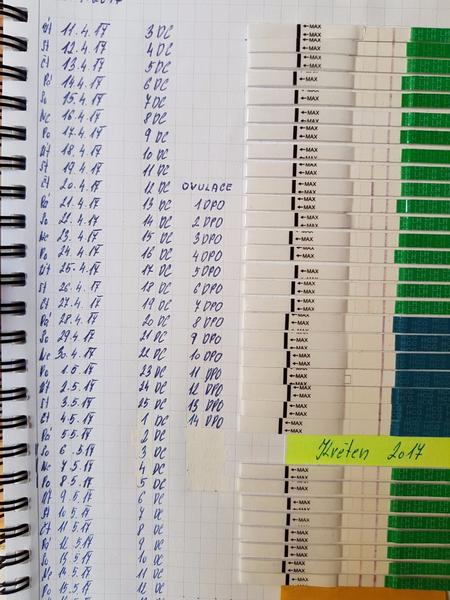 Út 11.4.17 3 DC
St 12.4.17 4 DC
Čt 13.4.17 5 DC
Pá 14.4.17 6 DC
So 15.4.17 7 DC
Ne 16.4.17 8 DC
Po 17.4.17 9 DC
Út 18.4.17 10 DC
St 19.4.17 11 DC
Čt 20.4.17 12 DC OVULACE
Pá 21.4.17 13 DC 1 DPO
So 22.4.17 14 DC 2 DPO
Ne 23.4.17 15 DC 3 DPO
Po 24.4.17 16 DC 4 DPO
Út 25.4.17 17 DC 5 DPO
St 26.4.17 18 DC 6 DPO
Čt 27.4.17 19 DC 7 DPO
Pá 28.4.17 20 DC 8 DPO
So 29.4.17 21 DC 9 DPO
Ne 30.4.17 22 DC 10 DPO
Po 1.5.17 23 DC 11 DPO
Út 2.5.17 24 DC 12 DPO
St 3.5.17 25 DC 13 DPO
Čt 4.5.17 1 DC 14 DPO
Pá 5.5.17 2 DC
So 6.5.17 3 DC
Květen 2017
Ne 7.5.17 4 DC
Po 8.5.17 5 DC
Út 9.5.17 6 DC
St 10.5.17 7 DC
Čt 11.5.17 8 DC
Pá 12.5.17 9 DC
So 13.5.17 10 DC
Ne 14.5.17 11 DC
Po 15.5.17 12 DC
←MAX